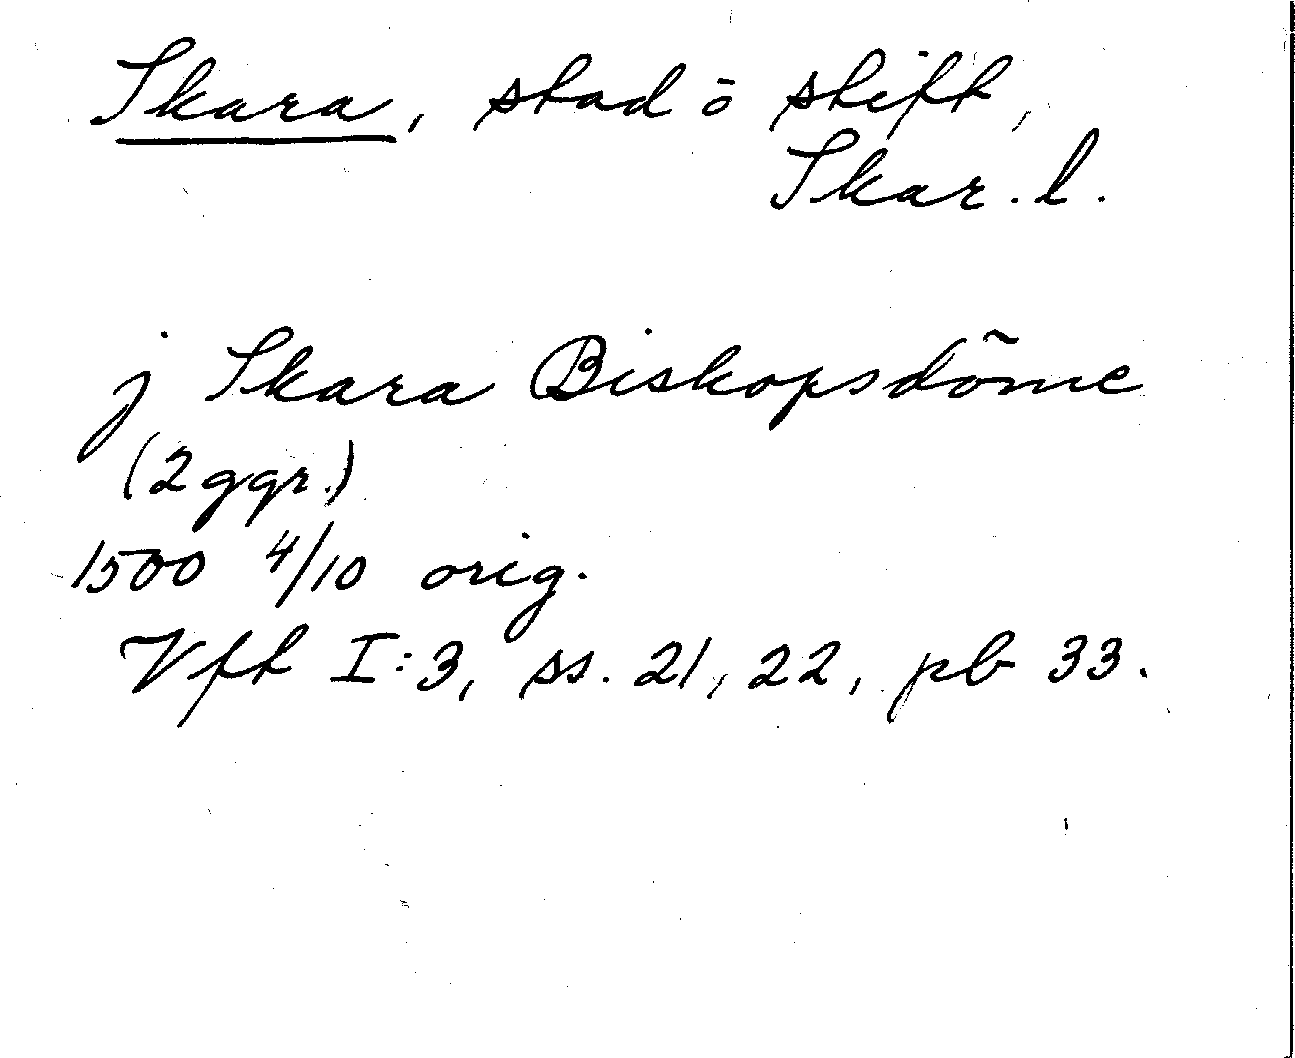 Skara, stad ō stift,
Skar. l.
j Skara Biskopsdõme
(2 ggr.)
1500 4/10 orig.
Vft I:3, ss. 21, 22, pb 33.